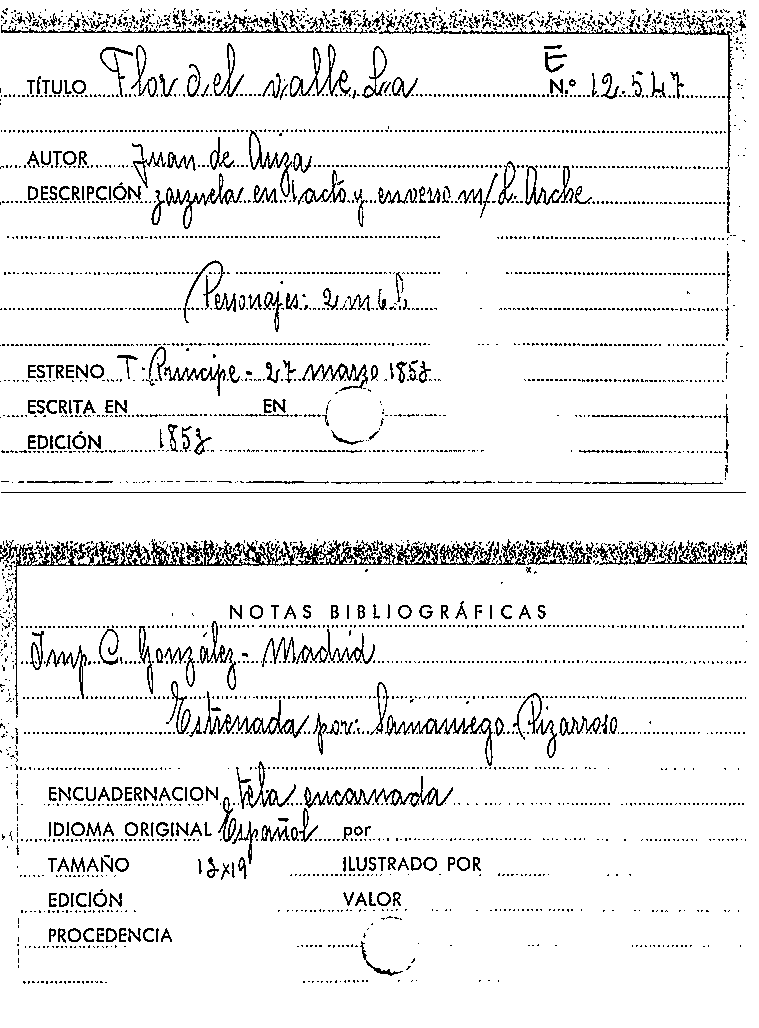 E
TÍTULO Flor del valle, La N.º 12.547
AUTOR Juan de Ariza
DESCRIPCIÓN zarzuela en 1 acto y en verso m/ L. Arche
Personajes: 2 m 6 h
ESTRENO T. Príncipe - 27 marzo 1853
ESCRITA EN EN
EDICIÓN 1853
NOTAS BIBLIOGRÁFICAS
Imp. C. González - Madrid
Estrenada por: Samaniego - Pizarroso
ENCUADERNACION tela encarnada
IDIOMA ORIGINAL Español por
TAMAÑO 13x19 ILUSTRADO POR
EDICIÓN VALOR
PROCEDENCIA